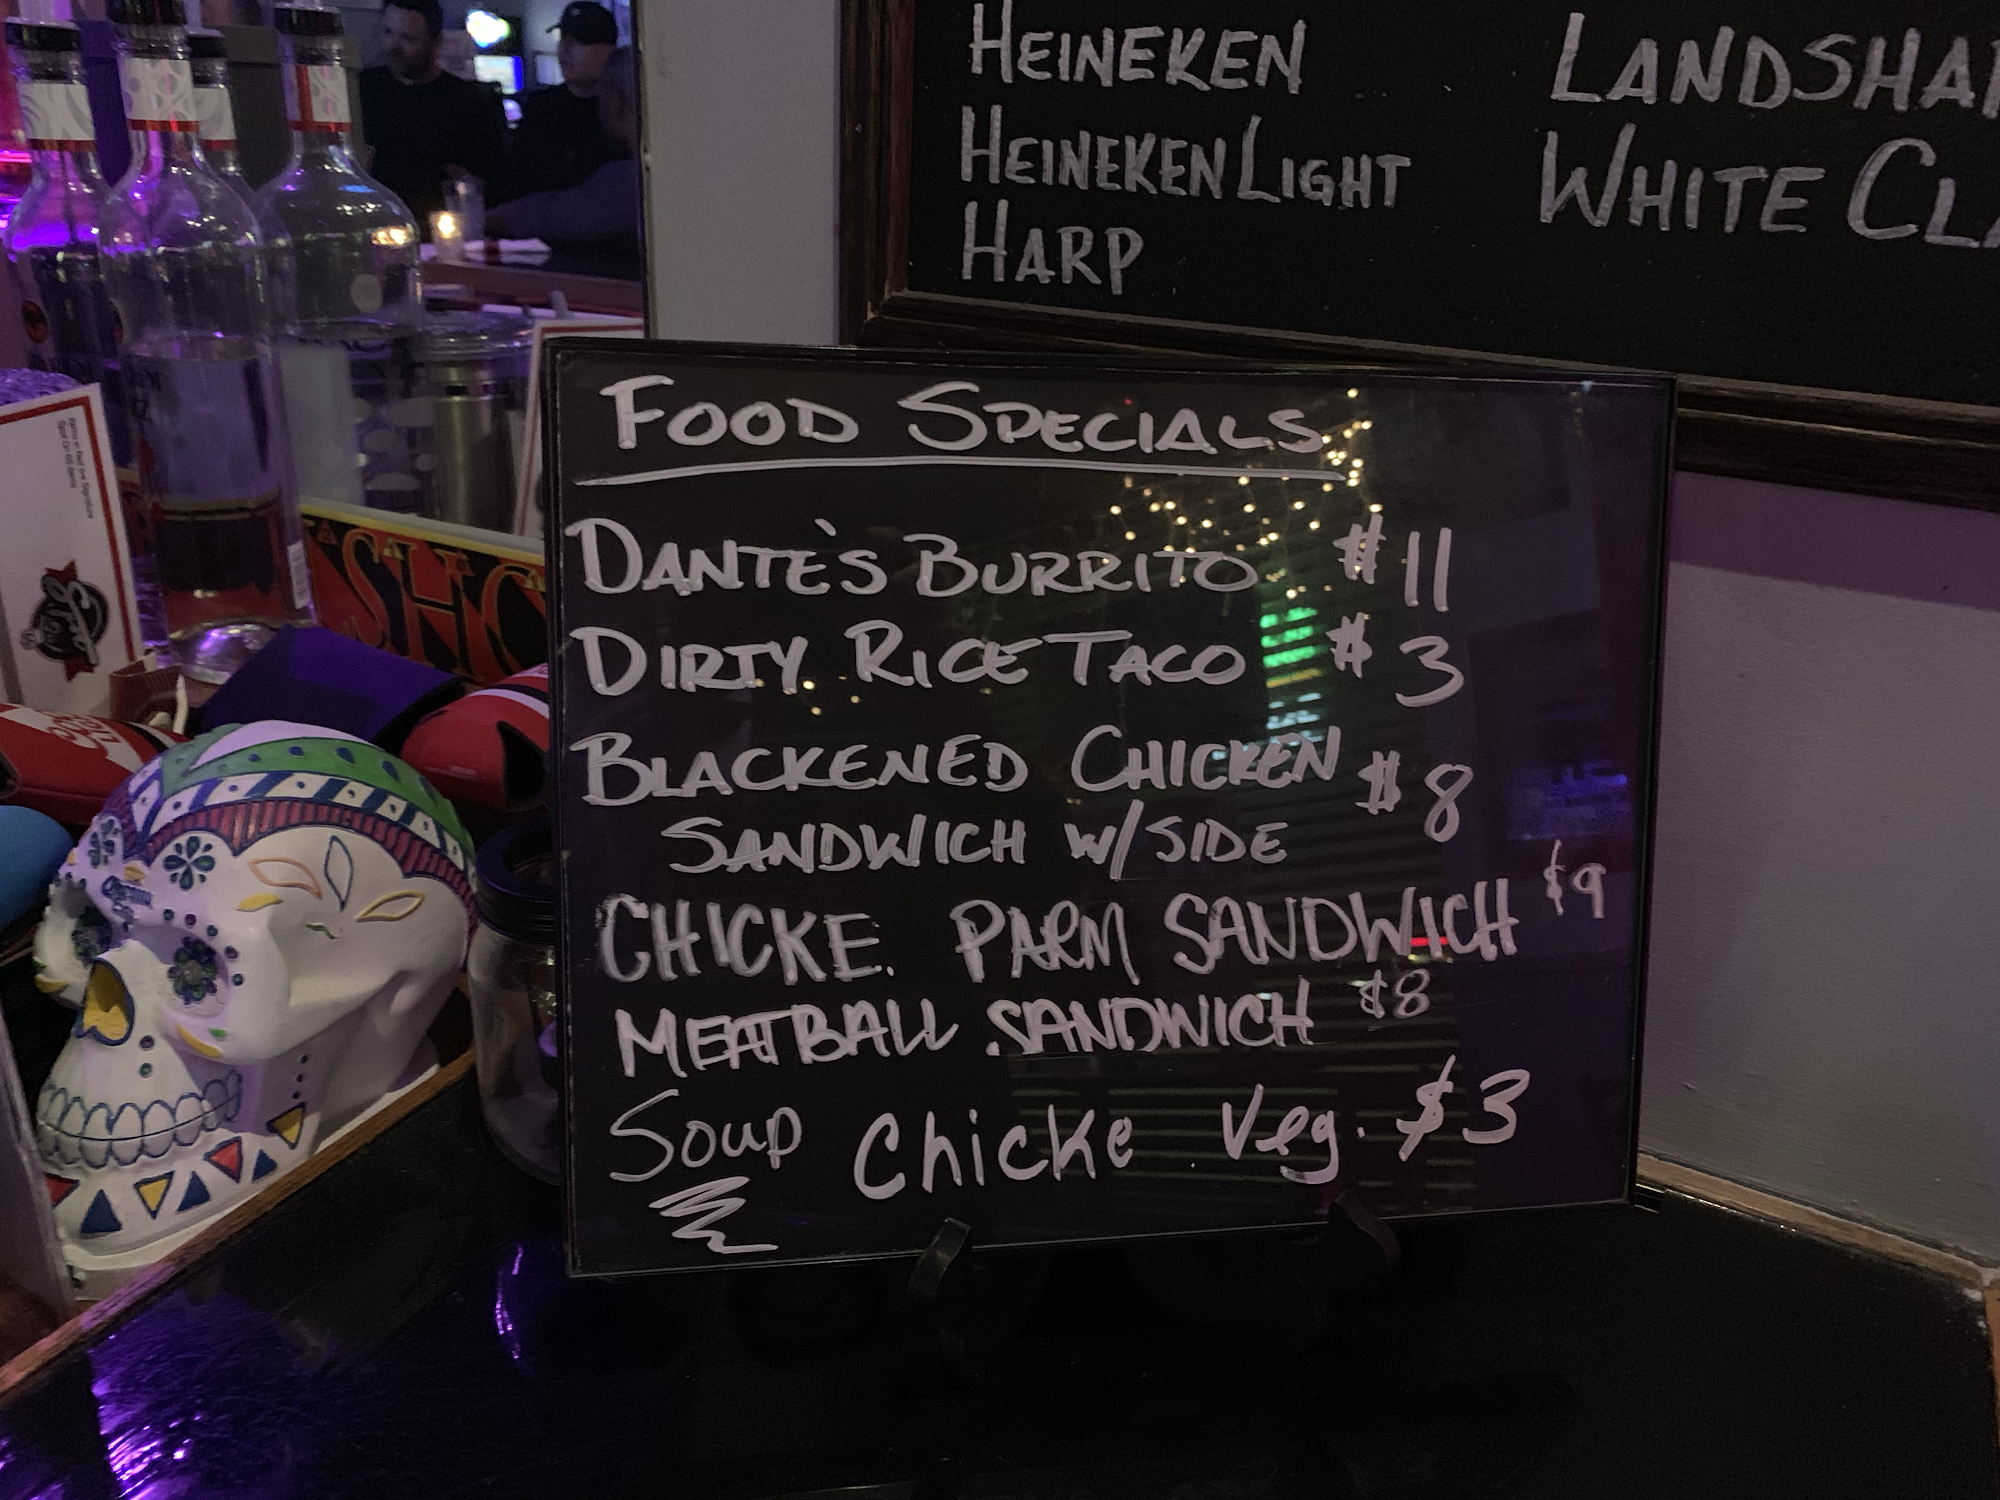 HEINEKEN
HEINEKEN LIGHT
HARP
LANDSHAR
WHITE CLA
FOOD SPECIALS
DANTE'S BURRITO $11
DIRTY RICE TACO $3
BLACKENED CHICKEN $8
SANDWICH W/SIDE
CHICKE. PARM SANDWICH $9
MEATBALL SANDWICH $8
Soup Chicke Veg. $3
SHO